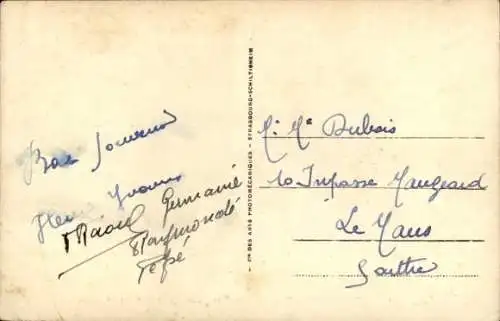 Bon Souvenir
Yvonne
Raoul Germaine
Raymonde
Pépé
Cie DES ARTS PHOTOMÉCANIQUES - STRASBOURG-SCHILTIGHEIM
M. Me Dubois
10 Impasse Maugeard
Le Mans
Sarthe